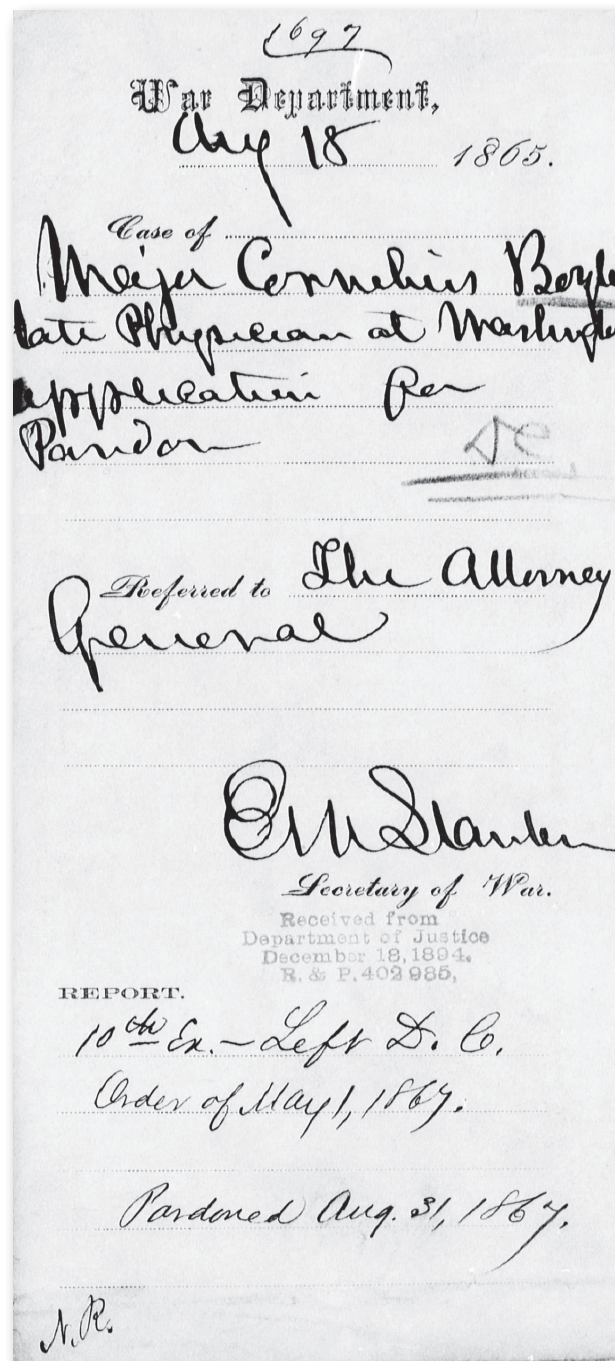 1697
War Department,
Aug 18 1865.
Case of
Major Cornelius Boyle
late Physician at Washington
application for
Pardon
DC
Referred to The Attorney
General
E M Stanton
Secretary of War.
Received from
Department of Justice
December 18, 1894.
R. & P. 402 985,
REPORT.
10th Ex. – Left D. C.
Order of May 1, 1867.
Pardoned Aug. 31, 1867.
N. R.